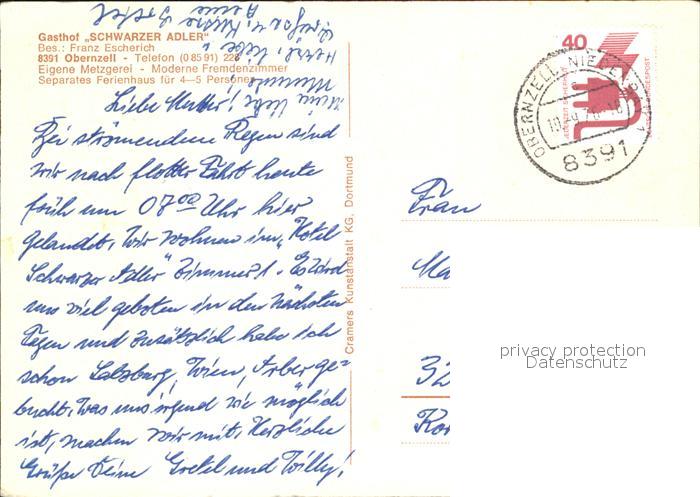 Gasthof „SCHWARZER ADLER"
Bes.: Franz Escherich
8391 Obernzell - Telefon (0 85 91) 228
Eigene Metzgerei - Moderne Fremdenzimmer
Separates Ferienhaus für 4—5 Personen
Liebe Mutter!
Bei strömendem Regen sind
wir nach flotter Fahrt heute
früh um 07⁰⁰ Uhr hier
gelandet. Wir wohnen im „Hotel
Schwarzer Adler" Zimmer 1. Es wird
uns viel geboten in den nächsten
Tagen und zusätzlich habe ich
schon Salzburg, Wien, Arber ge-
bucht. Was uns irgend wie möglich
ist, machen wir mit. Herzliche
Grüße Deine Gretel und Willy!
Herzl. liebe
Grüße u. Küsse
Deine Gretel
Cramers Kunstanstalt KG, Dortmund
40
JEDERZEIT SICHERHEIT
DEUTSCHE BUNDESPOST
OBERNZELL, NIEDERBAY
8391
Frau
Ma
32
Kor
privacy protection
Datenschutz